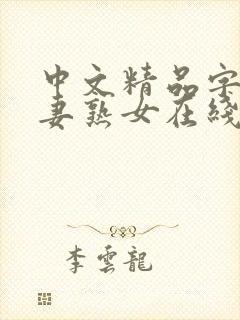 中文精品字
妻熟女在綫
李雲龍